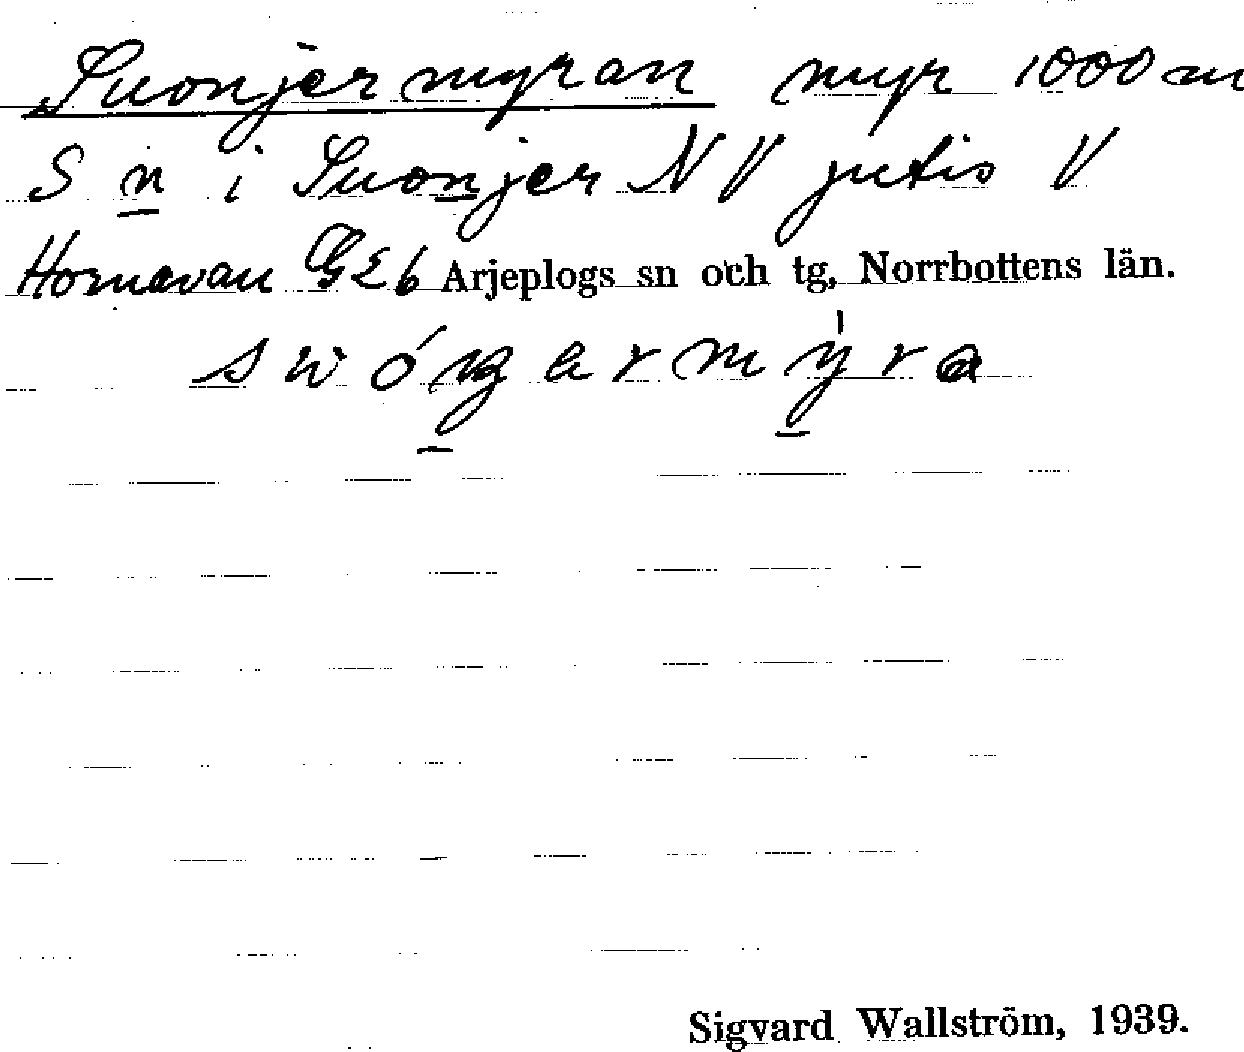 Suonjermyran myr 1000 m
S n i Suonjer NV Jutis V
Hornavan GEb Arjeplogs sn och tg, Norrbottens län.
Sigvard Wallström, 1939.